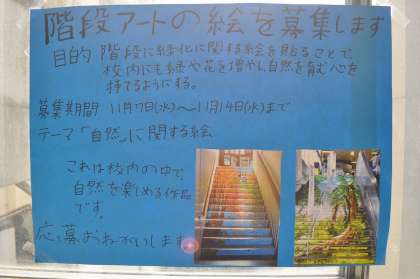 階段アートの絵を募集します
目的 階段に緑化に関する絵を貼ることで、
校内にも緑や花を増やし自然を育む心を
持てるようにする。
募集期間 11月7日(水)～11月14日(水)まで
テーマ「自然」に関する絵
これは校内の中で
自然を楽しめる作品
です。
応募おねがいします